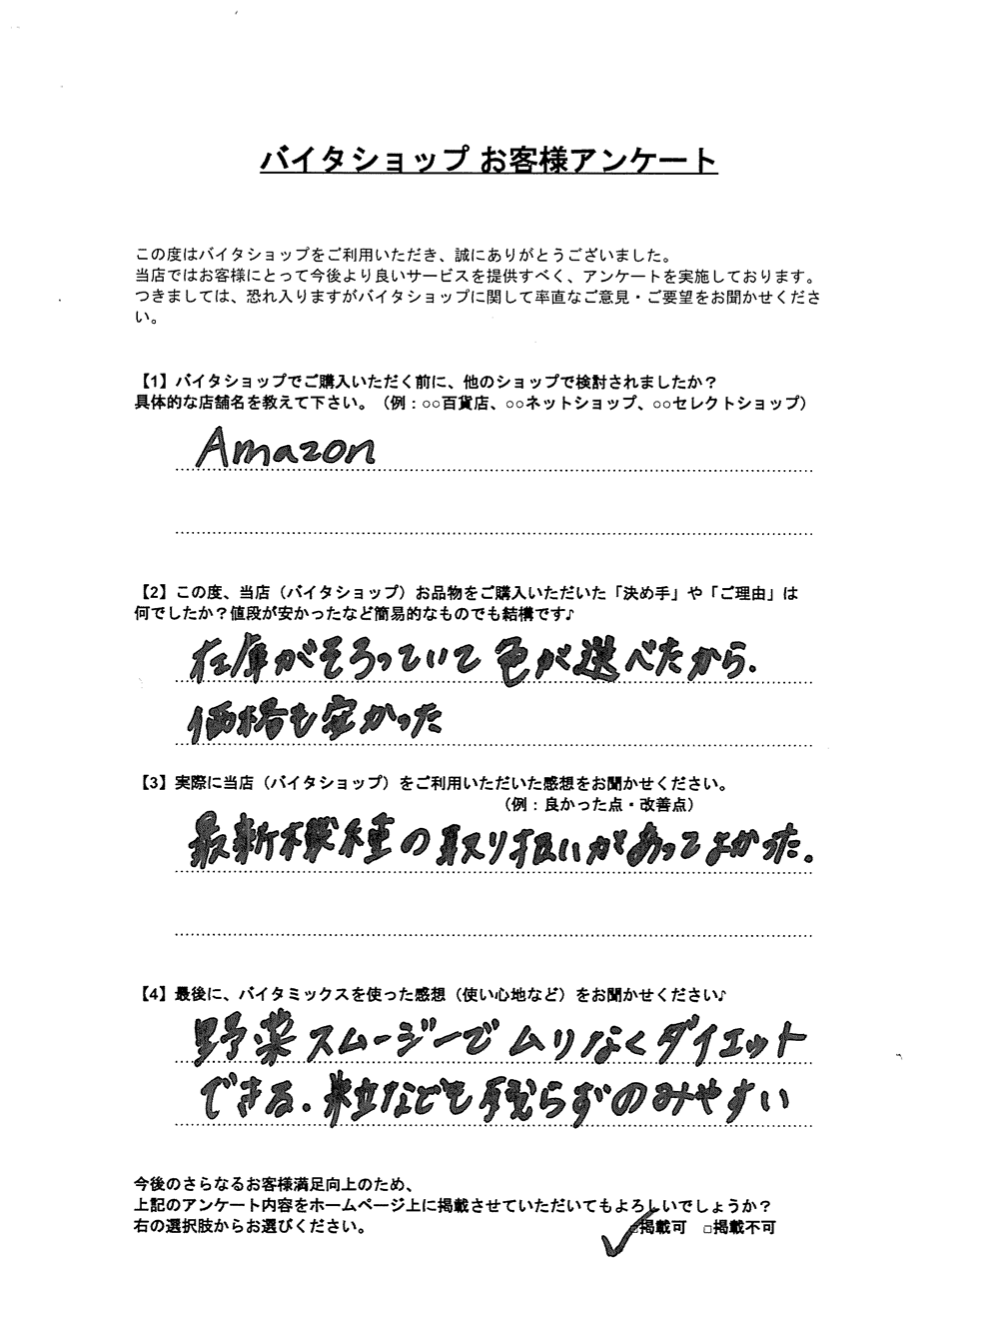 バイタショップ お客様アンケート
この度はバイタショップをご利用いただき、誠にありがとうございました。
当店ではお客様にとって今後より良いサービスを提供すべく、アンケートを実施しております。
つきましては、恐れ入りますがバイタショップに関して率直なご意見・ご要望をお聞かせくださ
い。
【1】バイタショップでご購入いただく前に、他のショップで検討されましたか？
具体的な店舗名を教えて下さい。（例：○○百貨店、○○ネットショップ、○○セレクトショップ）
Amazon
【2】この度、当店（バイタショップ）お品物をご購入いただいた「決め手」や「ご理由」は
何でしたか？値段が安かったなど簡易的なものでも結構です♪
在庫がそろっていて色が選べたから.
価格も安かった
【3】実際に当店（バイタショップ）をご利用いただいた感想をお聞かせください。
（例：良かった点・改善点）
最新機種の取り扱いがあってよかった。
【4】最後に、バイタミックスを使った感想（使い心地など）をお聞かせください♪
野菜スムージーでムリなくダイエット
できる. 粒なども残らずのみやすい
今後のさらなるお客様満足向上のため、
上記のアンケート内容をホームページ上に掲載させていただいてもよろしいでしょうか？
右の選択肢からお選びください。 ✓□掲載可 □掲載不可